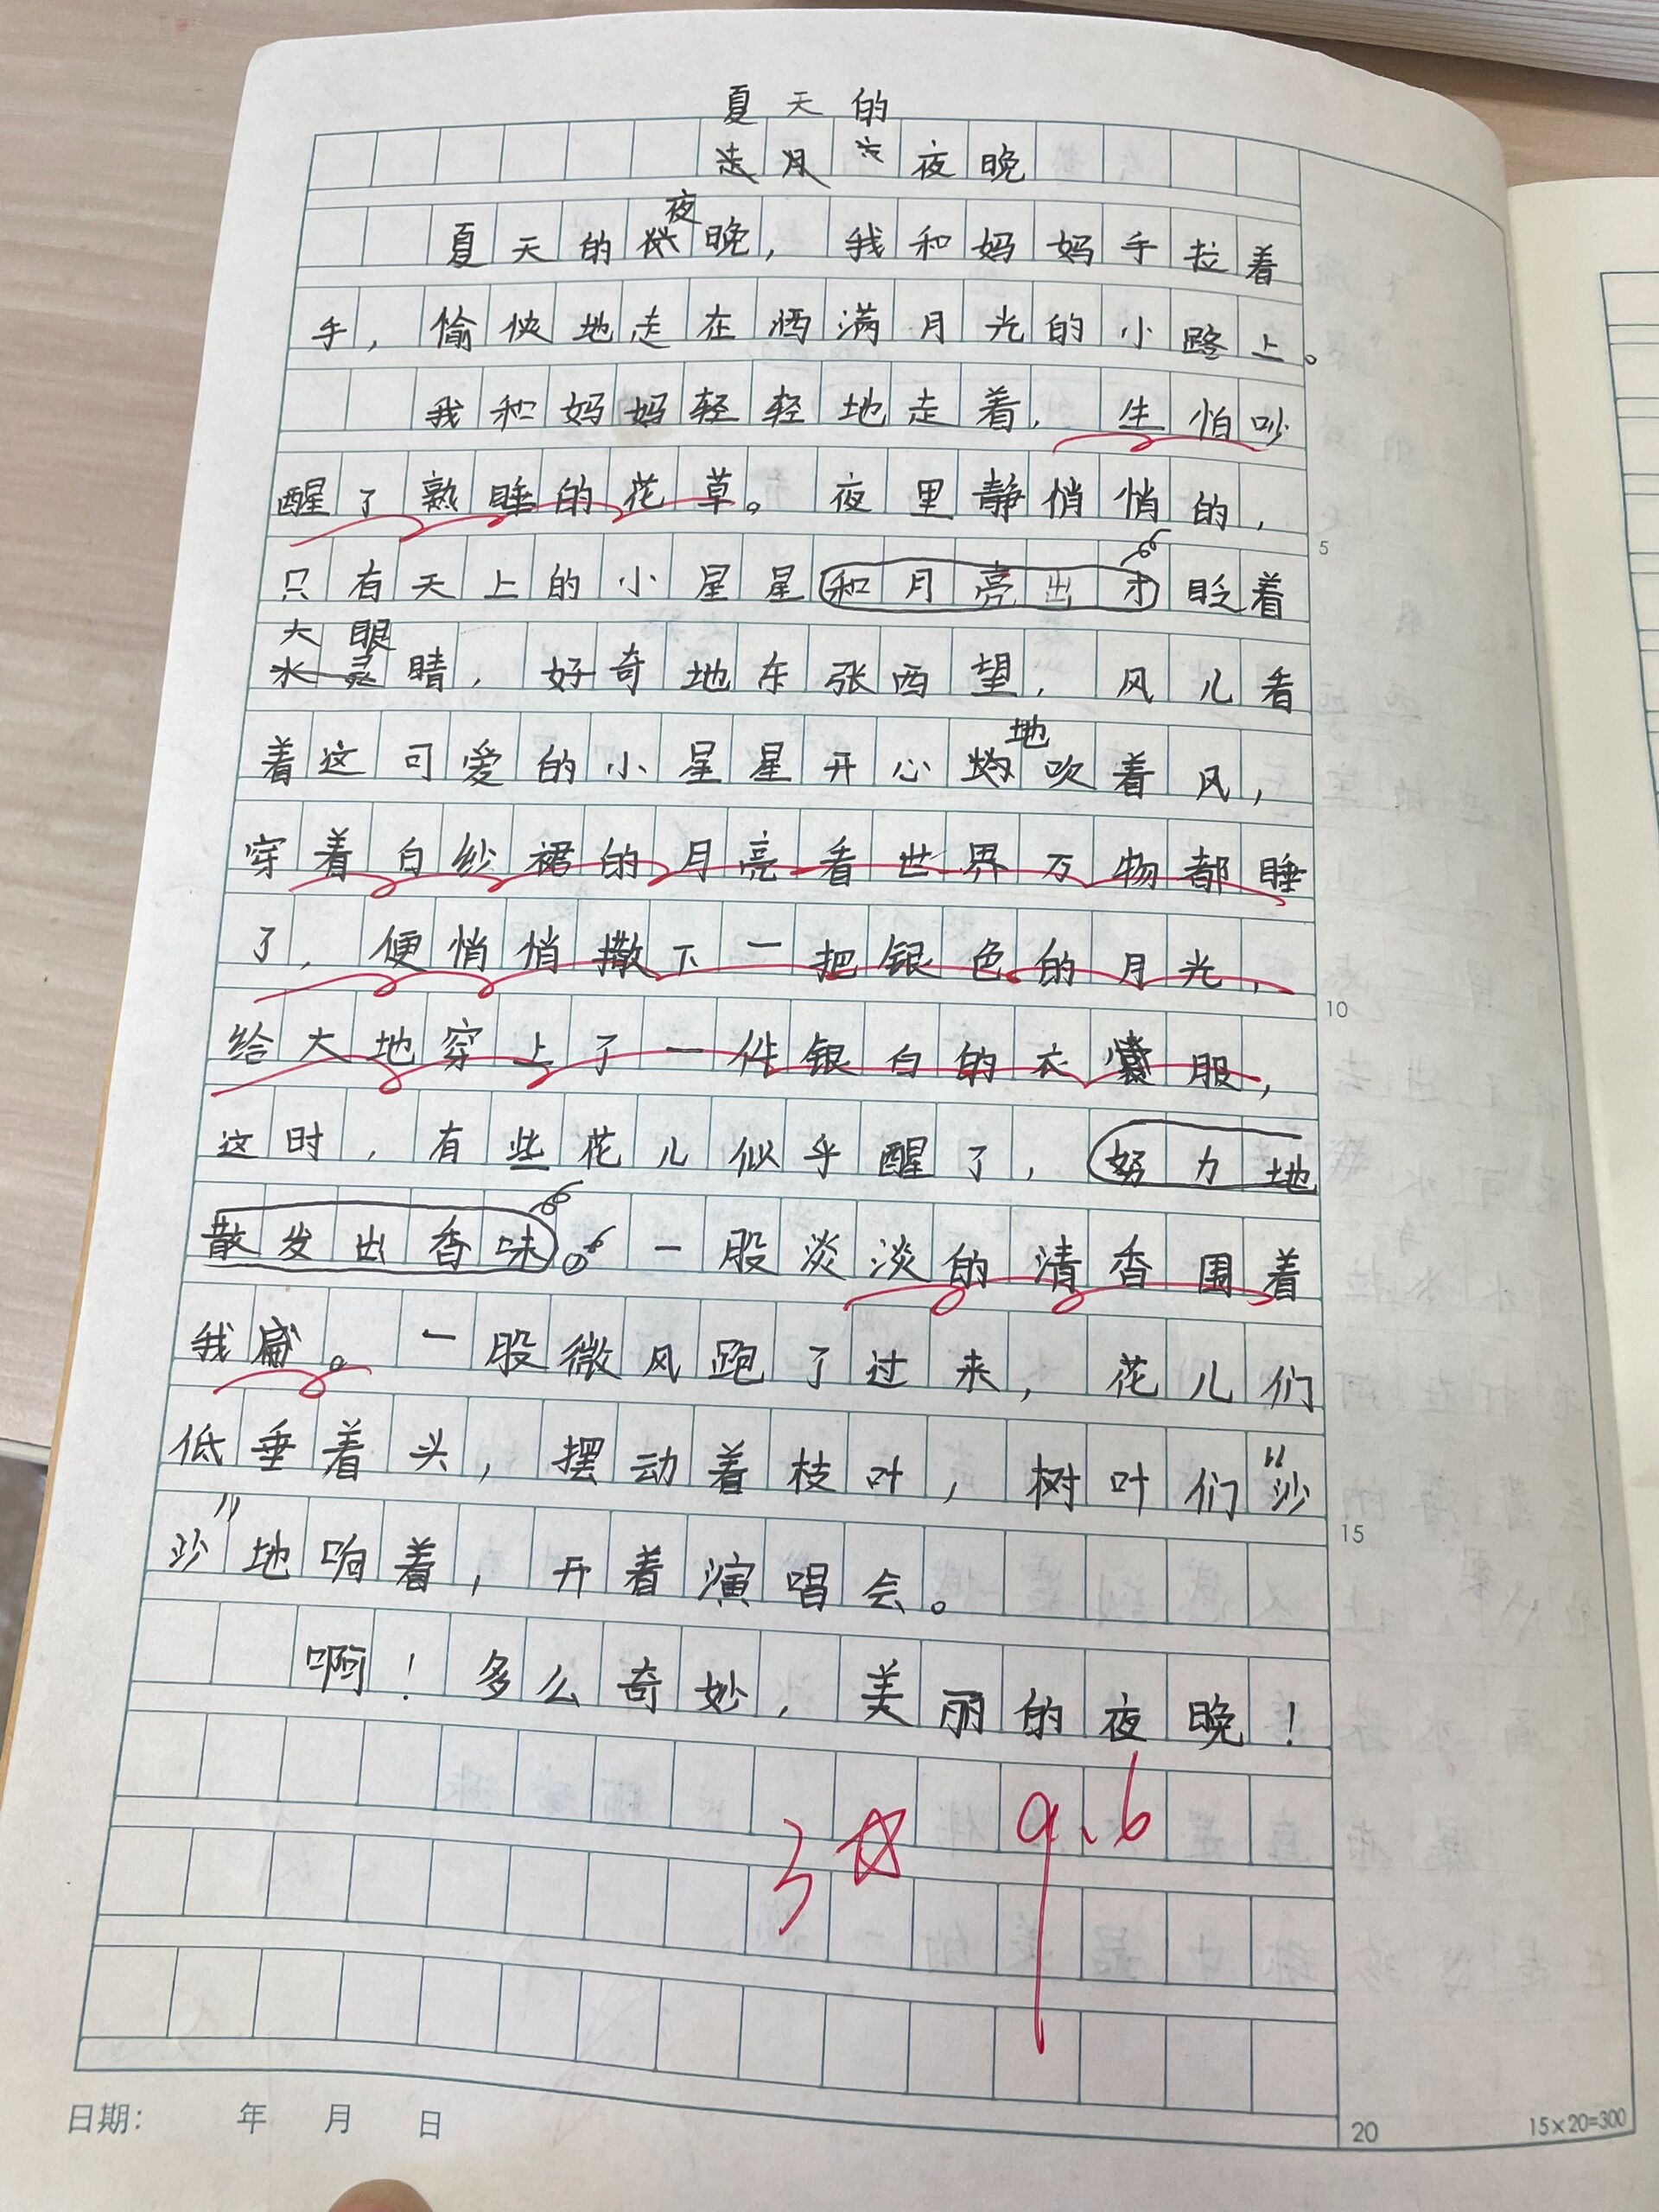 夏天的
夜晚
夏天的夜晚，我和妈妈手拉着
手，愉快地走在洒满月光的小路上。
我和妈妈轻轻地走着，生怕吵
醒了熟睡的花草。夜里静悄悄的，
只有天上的小星星和月亮出才眨着
大眼睛，好奇地东张西望，风儿看
着这可爱的小星星开心地吹着风，
穿着白纱裙的月亮看世界万物都睡
了，便悄悄撒下一把银色的月光，
给大地穿上了一件银白的衣服，
这时，有些花儿似乎醒了，努力地
散发出香味。一股淡淡的清香围着
我。一股微风跑了过来，花儿们
低垂着头，摆动着枝叶，树叶们“沙
沙”地响着，开着演唱会。
啊！多么奇妙，美丽的夜晚！
3☆ 9.6
日期： 年 月 日
5
10
15
20
15×20=300